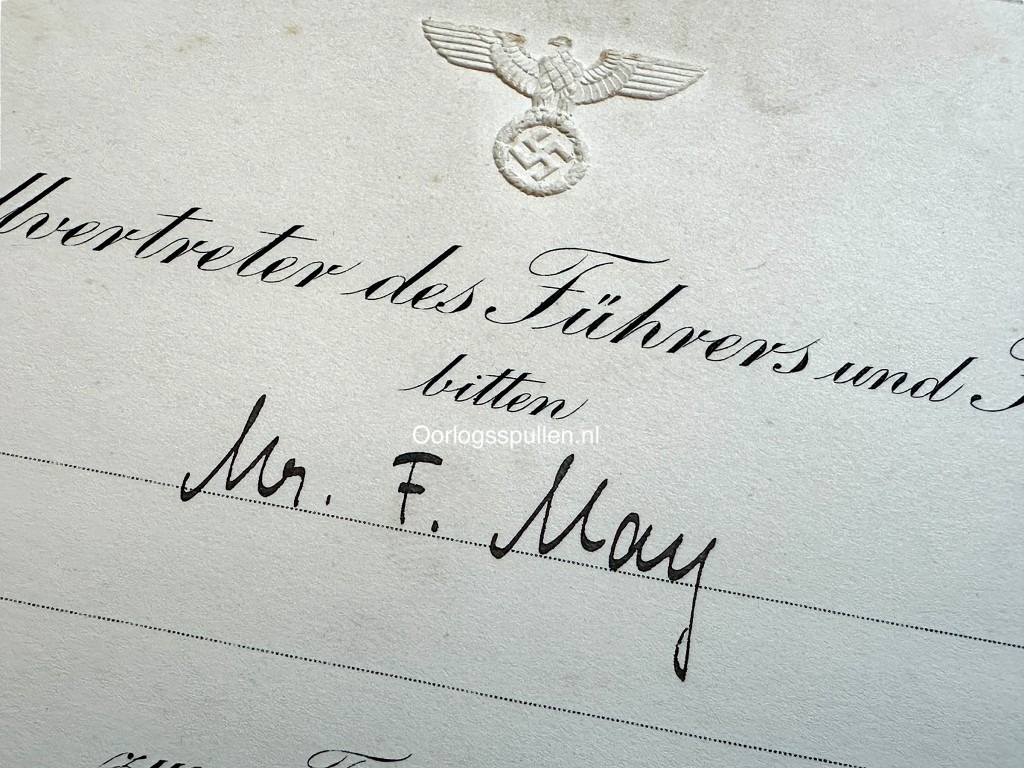 llvertreter des Führers und F
bitten
Oorlogsspullen.nl
Mr. F. May